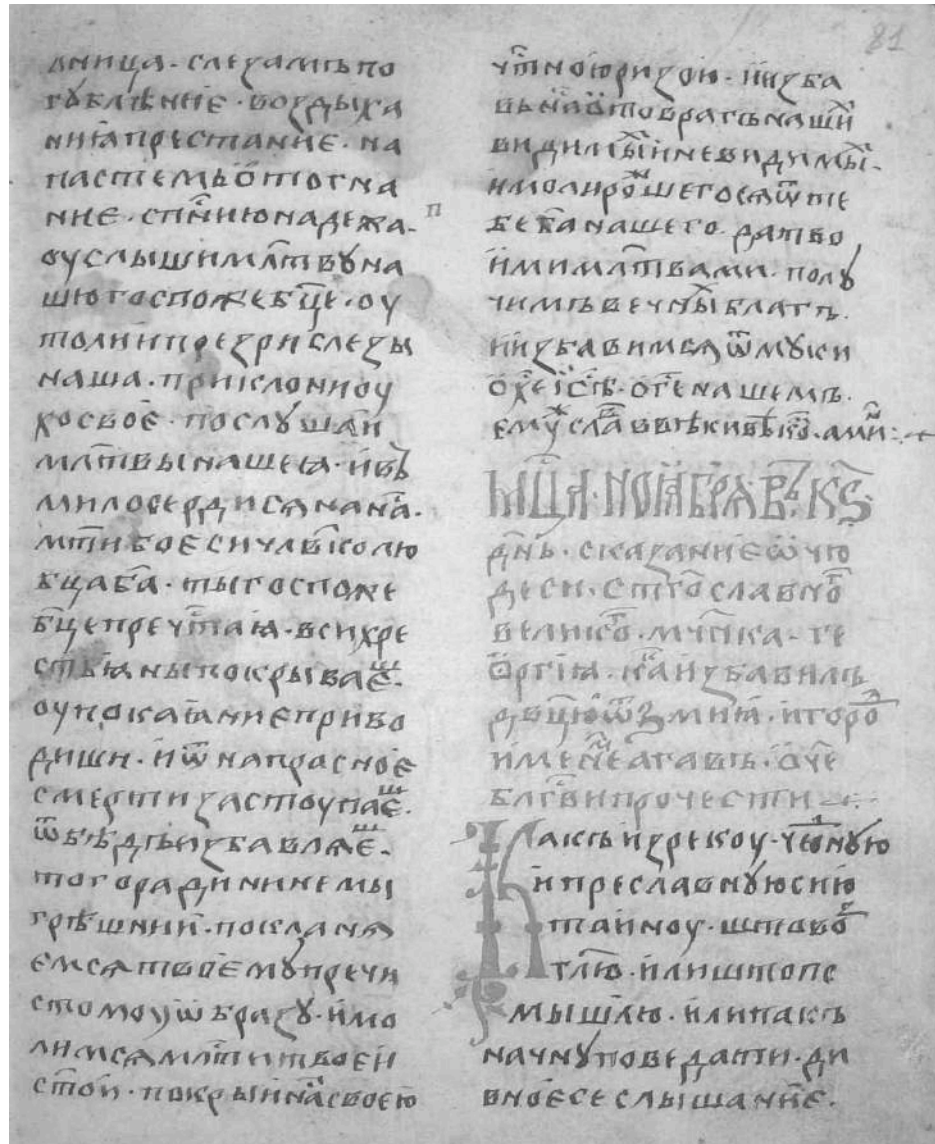 81
дница · слезамъ по
гꙋблѣниѥ · воздыха
ниꙗ престаниѥ · на
пастемъ ѿтогна
ние · сп҃нию надежа ·
оуслыши мл҃твꙋ на
шю госпоже бц҃е · оу
толи и презри слезы
наша · приклони оу
хо своѥ · послꙋшаи
мл҃твы нашеꙗ · и въ
милосердисѧ на на ·
мт҃и бо ѥси чл҃вколю
бца ба҃ · ты госпоже
бц҃е преч҃таꙗ · всих хре
стьꙗны покрываѥш ·
оу покаꙗниѥ приво
диши · и ѿ напрасноѥ
смерти застоупаѥш ·
ѿ бѣдъ избавлѧѥш ·
того ради нине мы
грѣшнии · поклонѧ
ѥмсѧ твоѥмꙋ пречи
стомоу ѡбразꙋ · и мо
лимсѧ млт҃и твоеи
ст҃ои · покрыи на своею
п
чт҃ною ризою · и изба
вь на ѿ то врагъ наши
видимы и невидимы ·
и моли рошегосѧ ѿ те
бе ба҃ нашего · да твo
ими мл҃твами · полꙋ
чимъ вечны благъ ·
и избавимсѧ ѿ мꙋки
о хе҃ iс҃ѣ · о ге҃ нашемъ ·
емꙋ слава в вѣки вѣко · ами :·
мц҃а · ноꙗбрѧ въ · кѕ ·
дн҃ь · сказаниѥ ѡ чю
деси · ст҃го славно
велико · мч҃нка · ге
ѡргиꙗ · ка избавилъ
дв҃цю ѿ змиꙗ · и горо
имене агавъ · ѡч҃е
блг҃ви прочести
Какъ изрекоу · чюную
и преславнꙋю сию
таиноу · што во
глю҃ · или што по
мышлю · или пакъ
начнꙋ поведати · ди
вноѥ се слышаниѥ ·